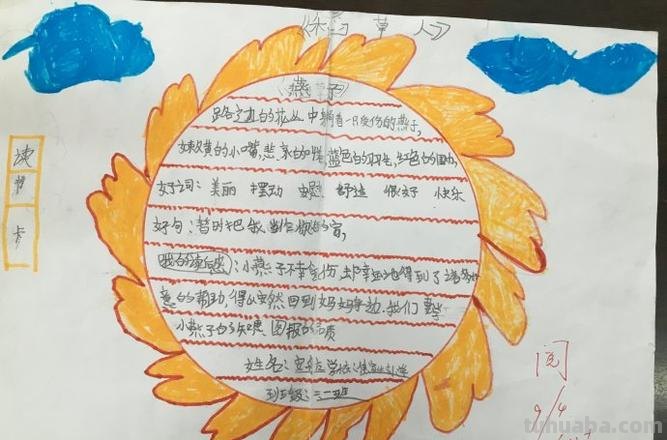 《稻草人》
《燕子》
路边的花丛中躺着一只受伤的燕子,
嫩黄的小嘴,悲哀的,蓝色的羽毛,红色的
好词: 美丽 摆动 舒适 很好 快乐
好句:暂时把我当作你的
我的读后感:小燕子不幸受伤,却幸运地得到了
的帮助,得以回到妈妈身边,我们要学
小燕子的知恩图报的品质
姓名: 学校: 小学
班级:三二班
读书卡
阅
9/4
tuhuaba.com